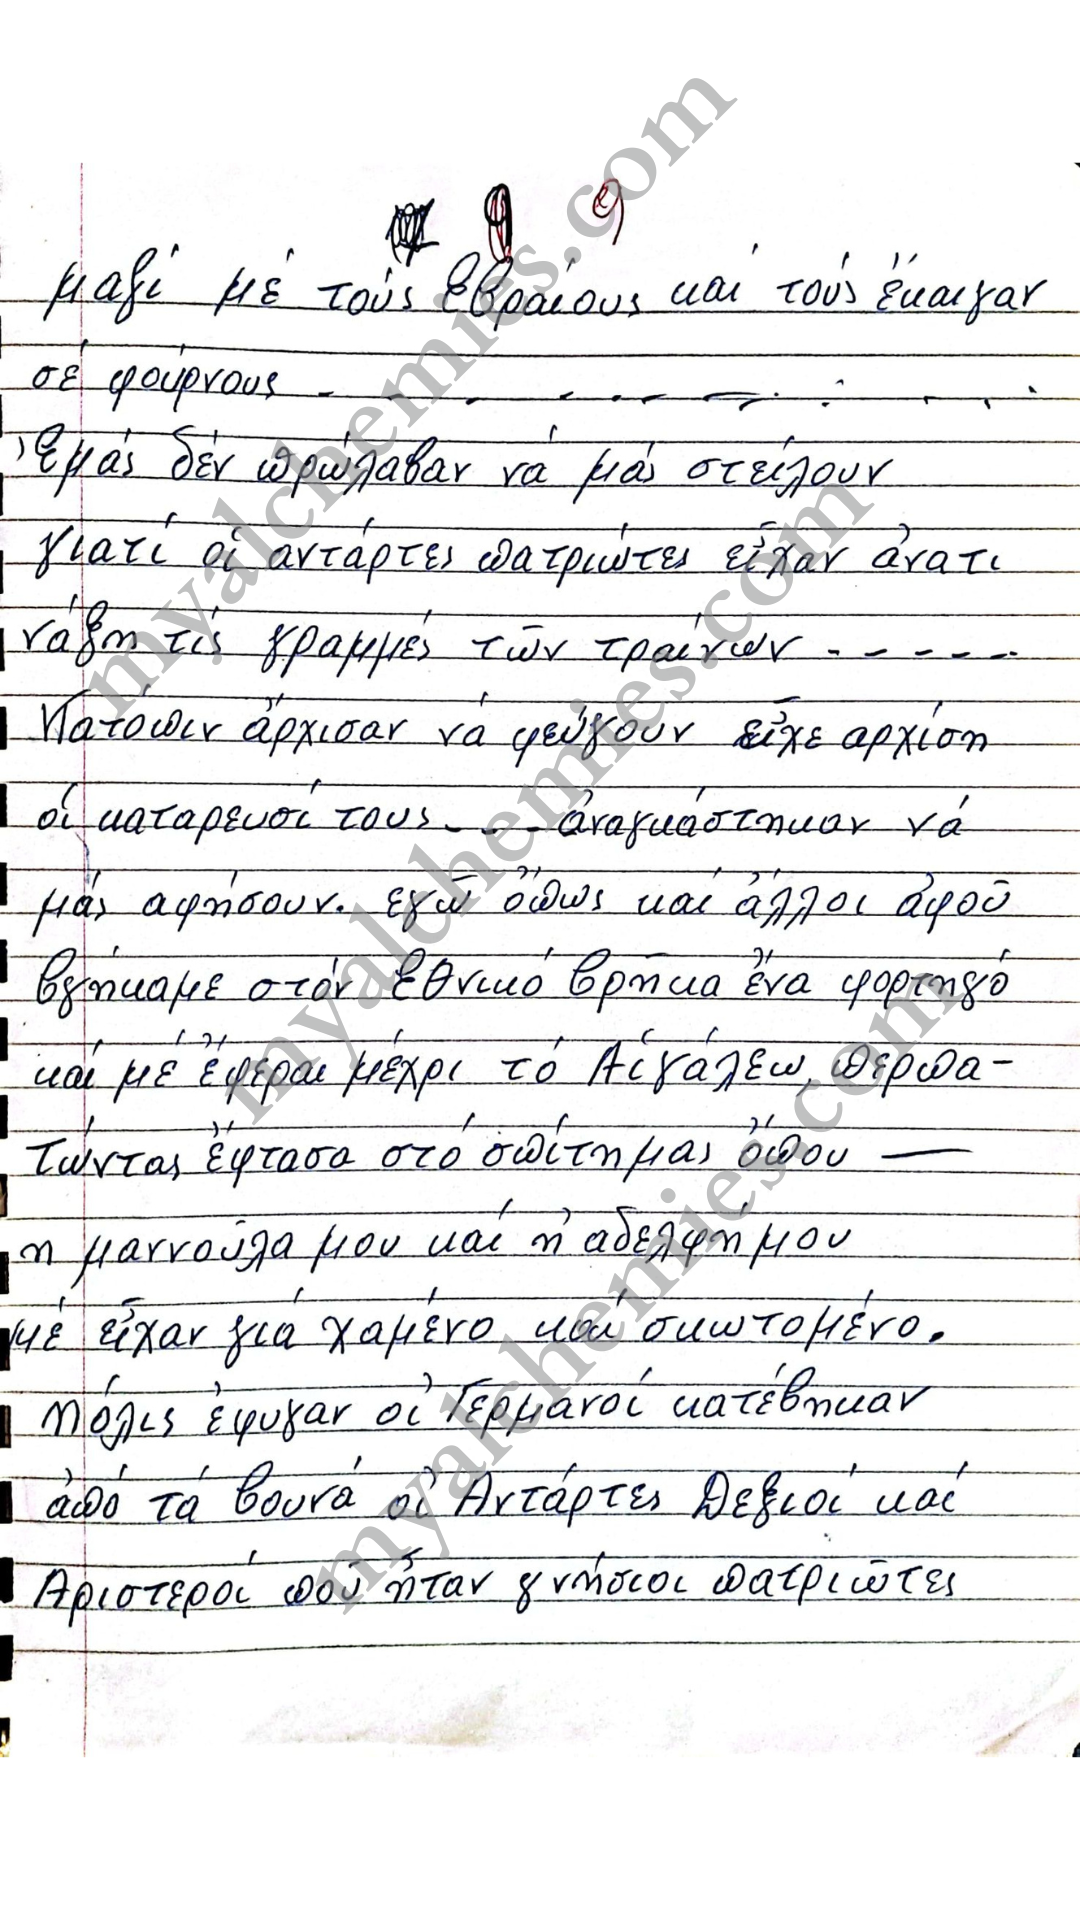 9 9
μαζί μέ τούς Εβραίους καί τούς έκαιγαν
σέ φούρνους - - - - - - -
Ἐμάς δέν πρώλαβαν νά μάς στείλουν
γιατί οἱ αντάρτες πατριώτες εἶχαν ἀνατι
νάξη τίς γραμμές τῶν τραίνων - - - - - -
Κατόπιν ἄρχισαν νά φεύγουν εἶχε αρχίση
οἱ καταρευσί τους - - - ἀναγκάστηκαν νά
μάς αφήσουν. εγῶ ὅπως καί ἄλλοι ἀφοῦ
βγήκαμε στόν Εθνικό βρῆκα ἕνα φορτηγό
καί μέ ἔφεραι μέχρι τό Αἰγάλεω, περπα-
τώντας ἔφτασα στό σπίτη μας ὅπου —
η μαννοῦλα μου καί ἡ αδελφή μου
μέ εἶχαν γιά χαμένο καί σκωτομένο.
Μόλις ἐφυγαν οἱ Γερμανοί κατέβηκαν
ἀπό τά βουνά οἱ Αντάρτες Δεξιοί καί
Αριστεροί πού ἦταν γνήσιοι πατριῶτες
myalchemies.com
myalchemies.com
myalchemies.com